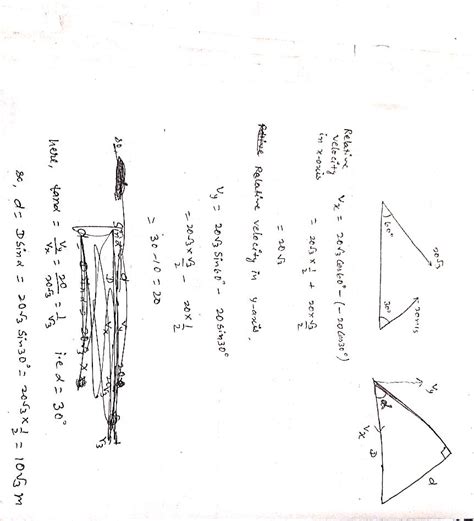 20√3
60°
30°
20 m/s
Vy
α
Vx
D
d
Relative
velocity
in x-axis
Vx = 20√3 cos60° - (-20cos30°)
= 20√3 × 1/2 + 20×√3/2
= 20√3
Relative velocity in y-axis.
Vy = 20√3 Sin60° - 20sin30°
= 20√3 × √3/2 - 20 × 1/2
= 30 - 10 = 20
so
here, tanα = Vy/Vx = 20/20√3 = 1/√3 i.e α = 30°
so, d = D sinα = 20√3 sin30° = 20√3 × 1/2 = 10√3 m